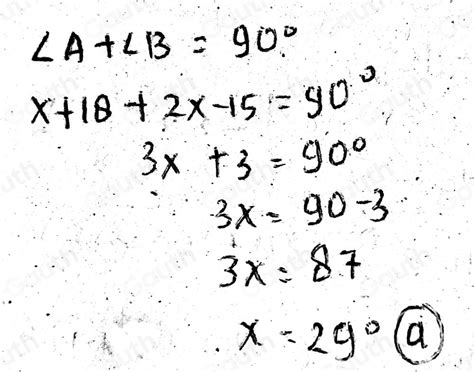 ∠A+∠B = 90°
x+18 + 2x-15 = 90°
3x + 3 = 90°
3x = 90-3
3x = 87
x = 29° ⓐ